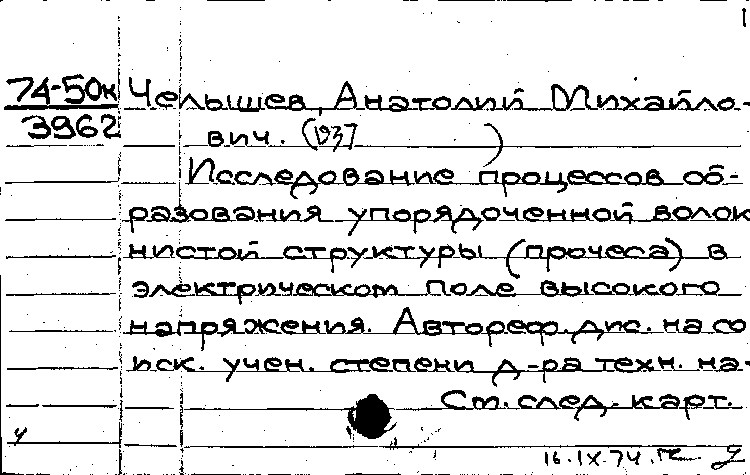 74-50к Челышев, Анатолий Михайло-
3962 вич. (1937 )
Исследование процессов об-
разования упорядоченной волок
нистой структуры (прочеса) в
электрическом поле высокого
напряжения. Автореф. дис. на со
иск. учен. степени д-ра техн. на-
См. след. карт.
16.IX.74.